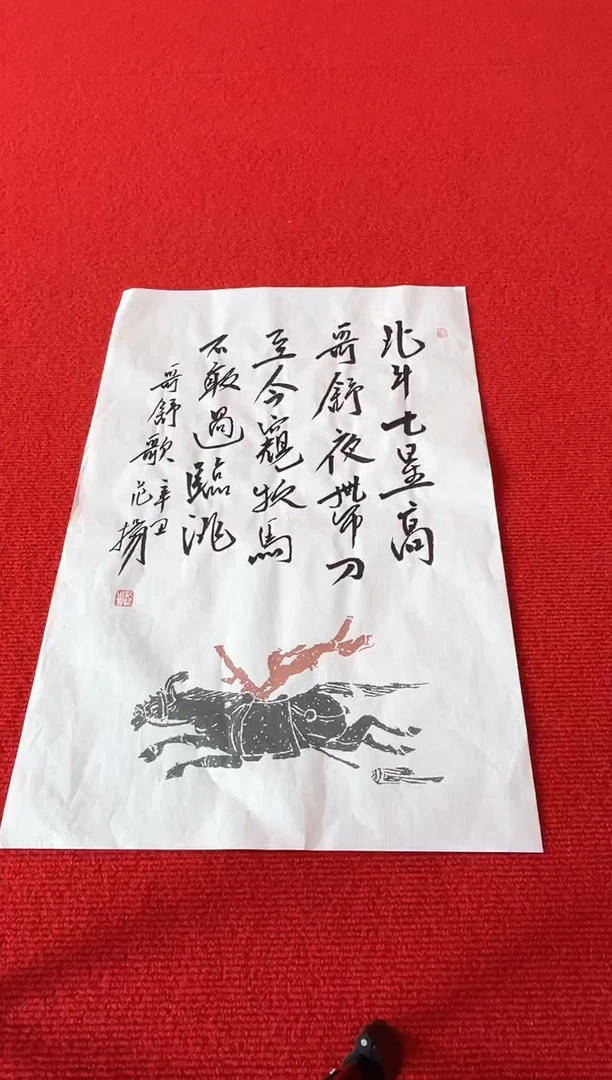 北斗七星高
哥舒夜带刀
至今窥牧馬
不敢過臨洮
哥舒歌
辛丑
范揚